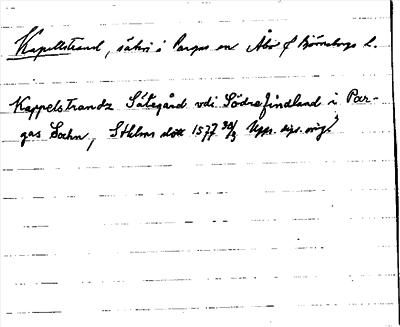 Kapellstrand, säteri i Pargas sn Åbo o Björneborgs l.
Kappelstrandz Sätegård vdi Södrefindland i Par-
gas Sochn, Sthlms slott 1577 30/3 Upps. sigs. orig.